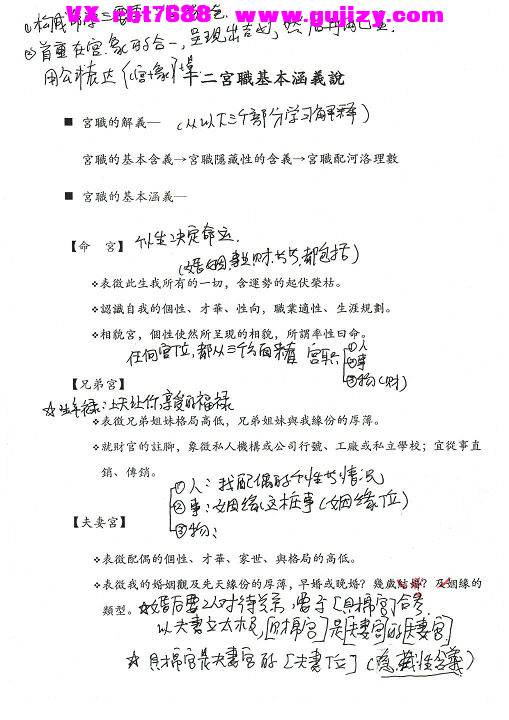 VX rbt7688 www.gujizy.com
②首重在宮、象的合一,呈現出吉凶,
用公式表达 十二宮職基本涵義說
■ 宮職的解義— (从以下三个部分学习解释)
宮職的基本含義→宮職隱藏性的含義→宮職配河洛理數
■ 宮職的基本涵義—
【命 宮】 个性决定命运.
(婚姻.事业.财.等等.都包括)
❖表徵此生我所有的一切,含運勢的起伏榮枯。
❖認識自我的個性、才華、性向,職業適性、生涯規劃。
❖相貌宮,個性使然所呈現的相貌,所謂率性曰命。
任何宮位,都从三个方面来看 宮职 ①人
②事
③物(财)
【兄弟宮】
☆生年禄:上天让你享受的福禄
❖表徵兄弟姐妹格局高低,兄弟姐妹與我緣份的厚薄。
❖就財官的註腳,象徵私人機構或公司行號、工廠或私立學校;宜從事直
銷、傳銷。
①人:我配偶的个性与情况
②事:姻缘这桩事(姻缘位)
③物:
【夫妻宮】
❖表徵配偶的個性、才華、家世、與格局的高低。
❖表徵我的婚姻觀及先天緣份的厚薄,早婚或晚婚?幾歲結婚?及姻緣的
類型。☆婚后要以对待关系,要予[貝棉宮]合參.
以夫妻立太极,[貝棉宮]是[夫妻宮]的[夫妻宮]
☆ 貝棉宮是夫妻宮的[夫妻位](隐藏性含義)